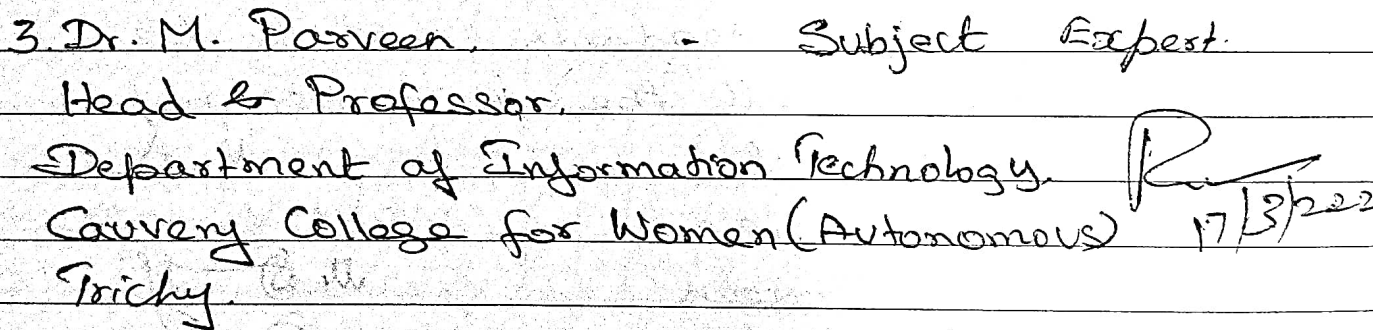 3. Dr. M. Parveen, - Subject Expert.
Head & Professor,
Department of Information Technology.
Cauvery College for Women (Autonomous) 17/3/222
Trichy.